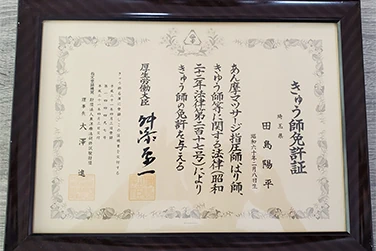 きゅう師免許証
埼玉県
田島陽平
昭和六十年二月八日生
あん摩マッサージ指圧師、はり師、
きゅう師等に関する法律(昭和
二十二年法律第二百十七号)により
きゅう師の免許を与える
厚生労働大臣
舛添要一
大澤進